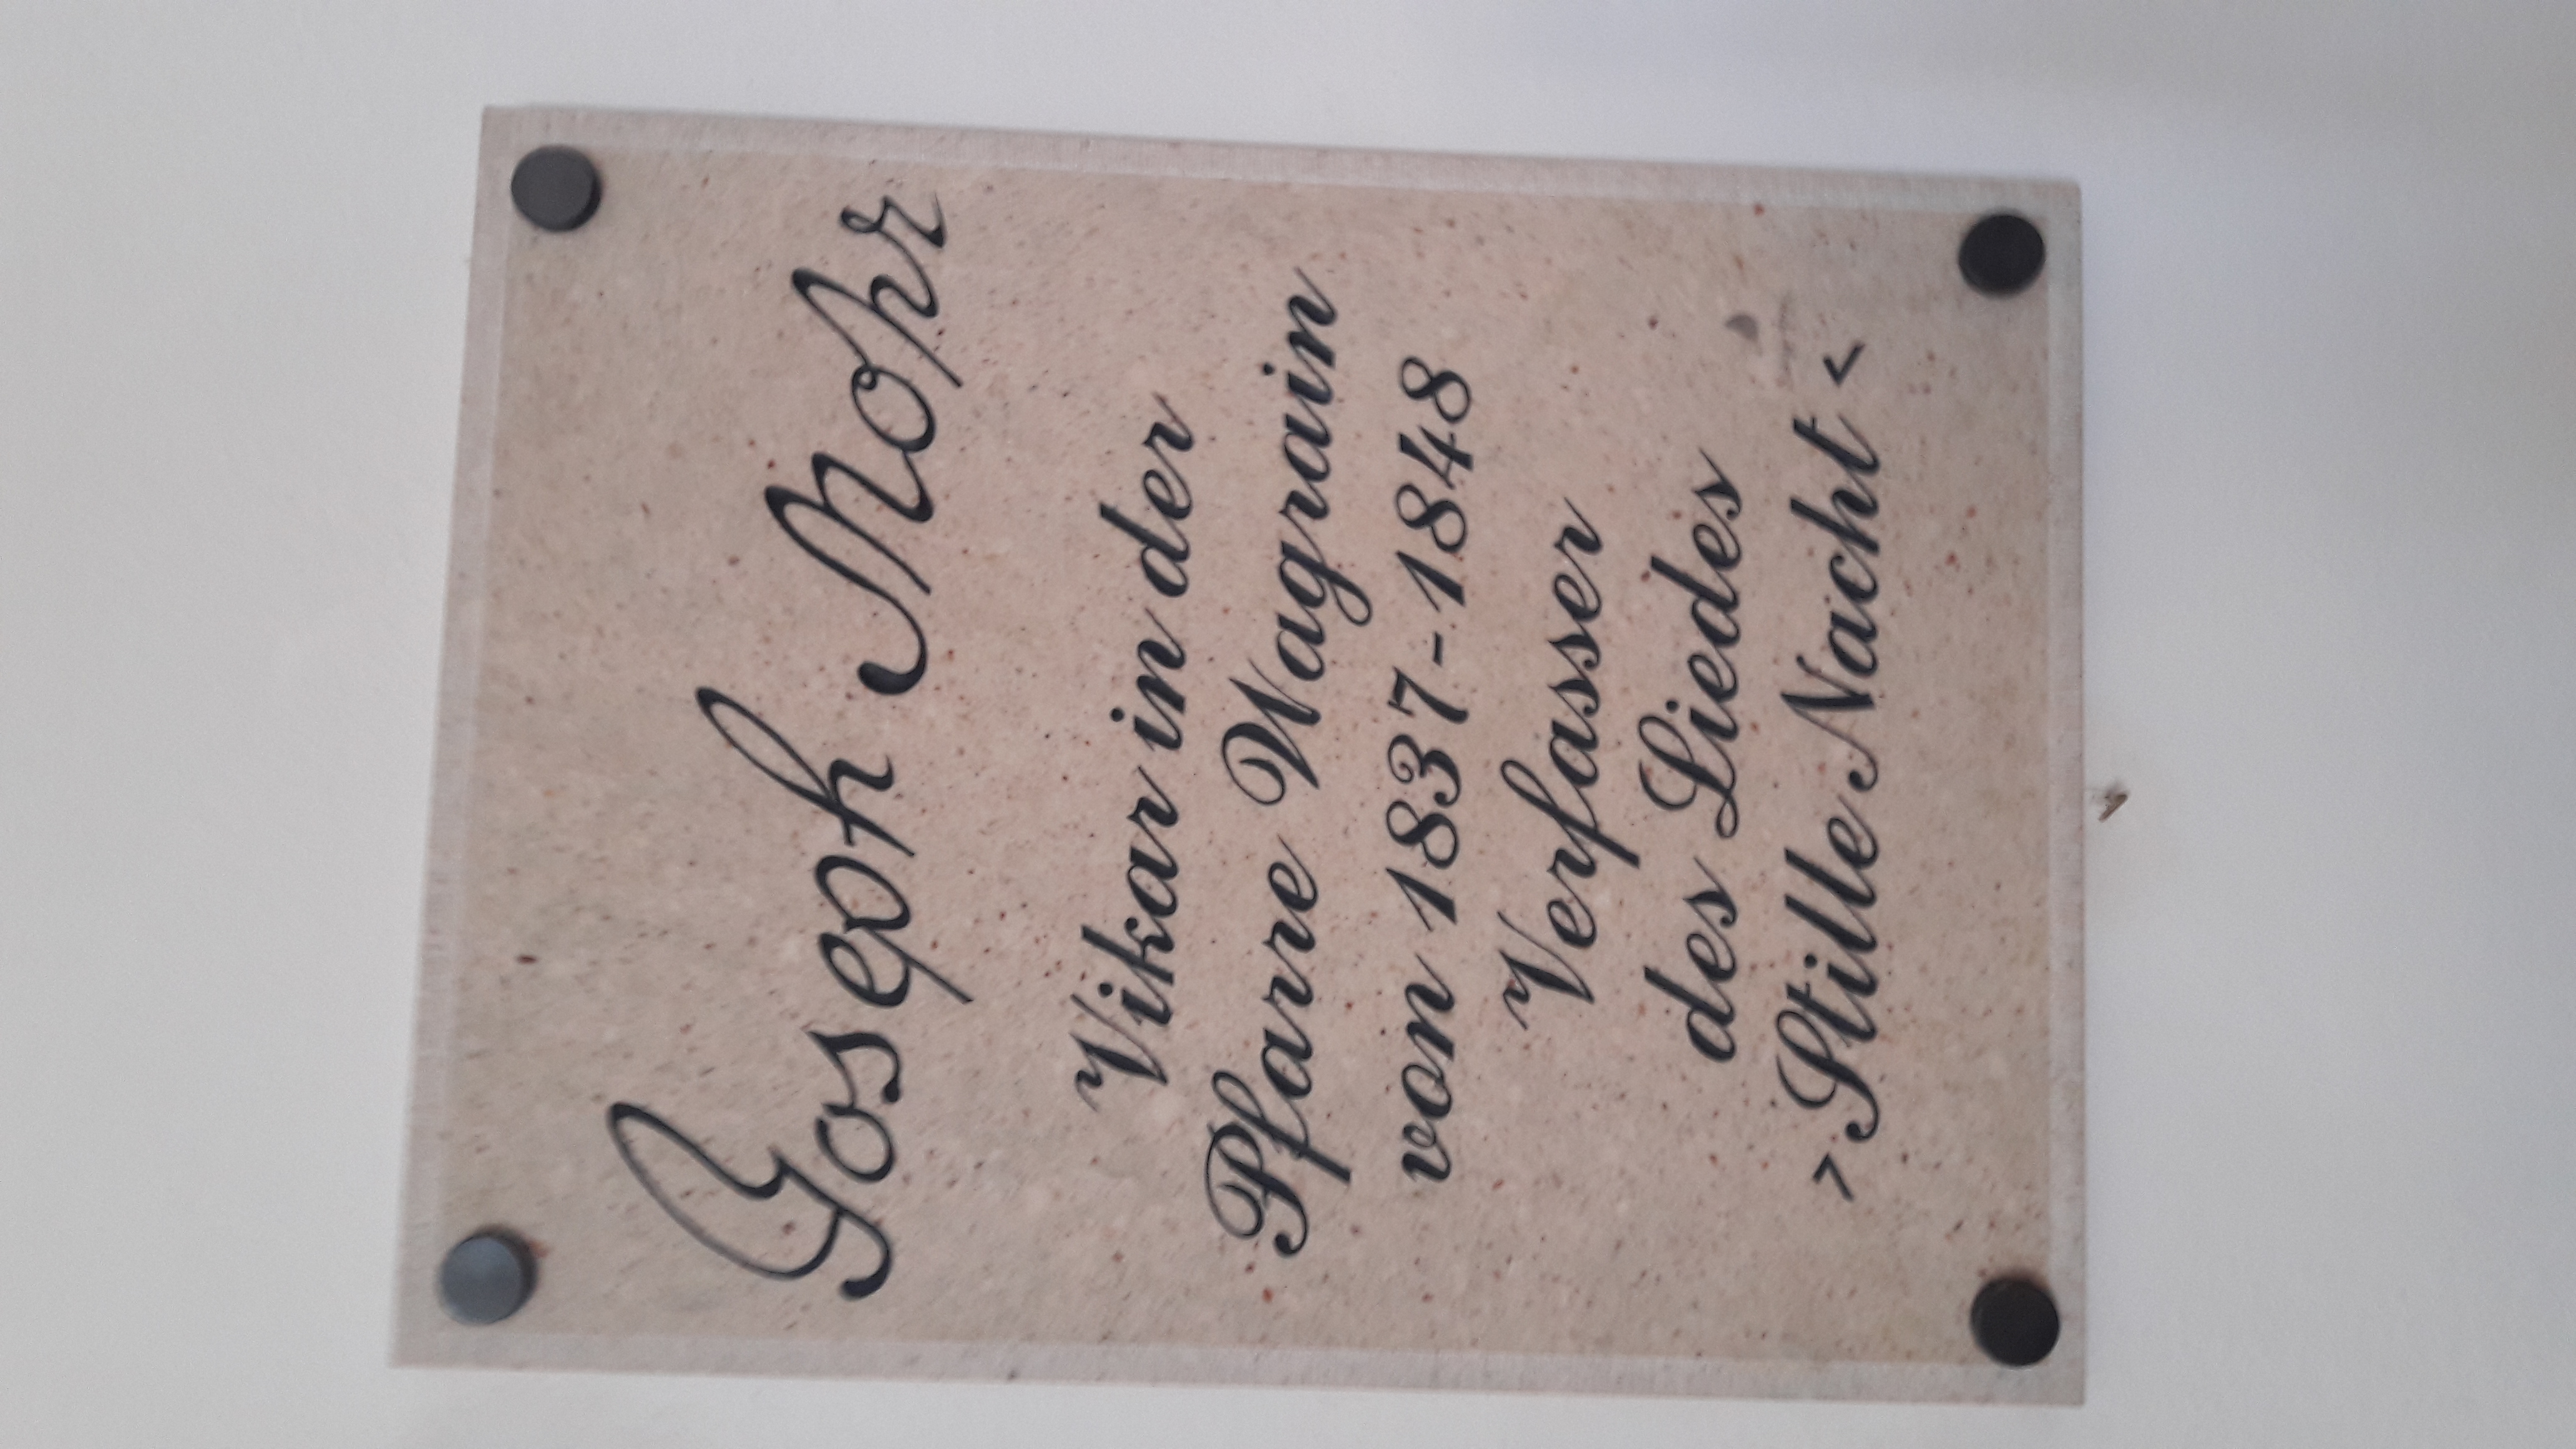 Joseph Mohr
Vikar in der
Pfarre Wagrain
von 1837-1848
Verfasser
des Liedes
>Stille Nacht<